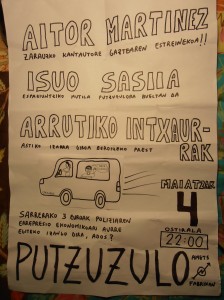 AITOR MARTINEZ
ZARAUZKO KANTAUTORE GAZTEAREN ESTREINEKOA!!
ISUO SASIIA
ESPARTINTXIKO MUTILA PUTZUZULORA BUELTAN DA
ARRUTIKO INTXAUR-
RAK
ASTIKO IZARRA GINGA BEROIENNO PREST
MAIATZAK
4
OSTIRALA
22:00
SARRERAKO 3 EUROAK POLIZIAREN
ERREPRESIO EKONOMIKOARI AURRE
EGITEKO IZANGO DIRA, ADOS?
PUTZUZULO
AMETS
FABRIKAN